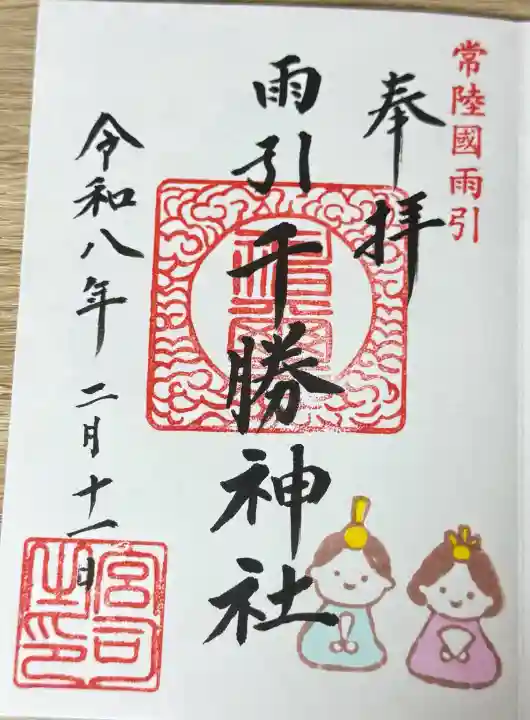 常陸國雨引
奉拝
雨引千勝神社
令和八年二月十一日
宮司之印